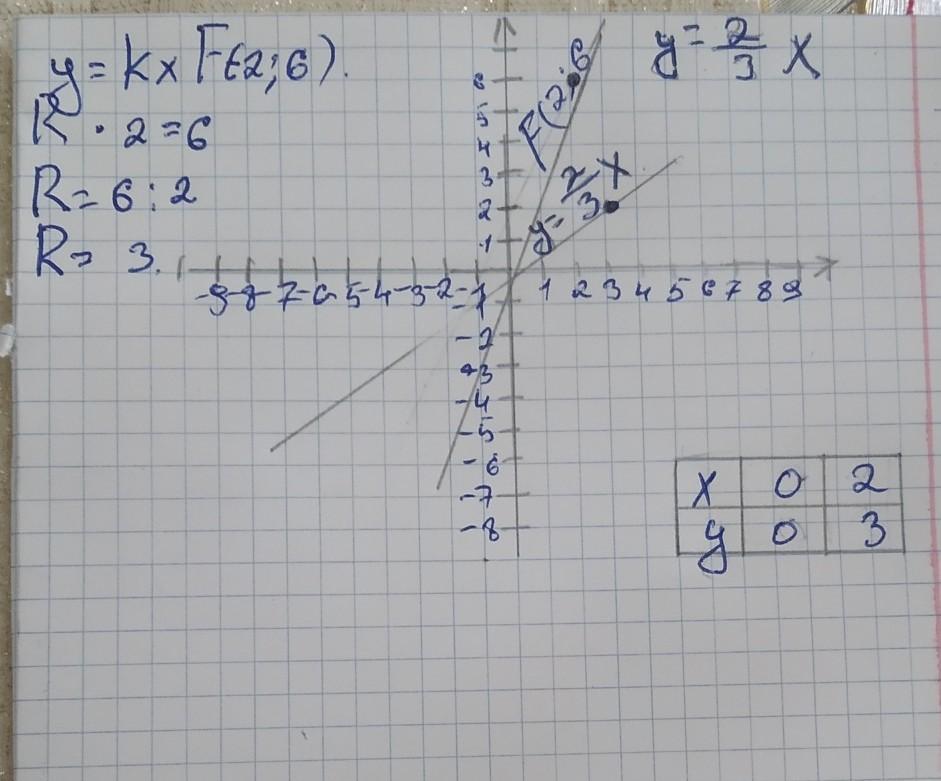 y = kx F(2;6).
R · 2 = 6
R = 6 : 2
R = 3.
y = 2/3 x
F(2;6
y = 2/3 x
6
5
4
3
2
1
-9 -8 -7 -6 -5 -4 -3 -2 -1 1 2 3 4 5 6 7 8 9
-1
-2
-3
-4
-5
-6
-7
-8
x 0 2
y 0 3